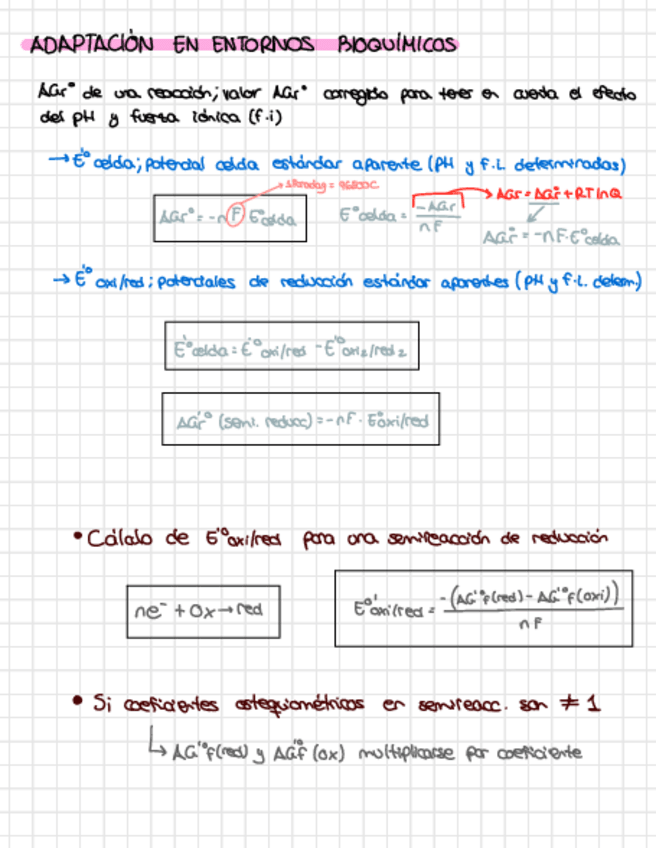 ADAPTACIÓN EN ENTORNOS BIOQUÍMICOS
ΔGr'° de una reacción; valor ΔGr° corregido para tener en cuenta el efecto
del pH y fuerza iónica (f.i)
→ E'° celda; potencial celda estándar aparente (pH y f.i. determinadas)
→ Faraday = 96800C.
ΔGr'° = -n F E'°celda
E°celda = -ΔGr / nF
→ ΔGr = ΔGr° + RT ln Q
ΔGr° = -nF·E°celda
→ E'° oxi/red; potenciales de reducción estándar aparentes (pH y f.i. determ.)
E'°celda = E'°oxi/red - E'°oxi₂/red₂
ΔGr'° (semi. reducc) = -nF · E'°oxi/red
• Cálculo de E'°oxi/red para una semireacción de reducción
ne⁻ + Ox → red
E°'oxi/red = -(ΔG'°f(red) - ΔG'°f(oxi)) / nF
• Si coeficientes estequiométricos en semireacc. son ≠ 1
↳ ΔG'°f(red) y ΔG'°f (ox) multiplicarse por coeficiente